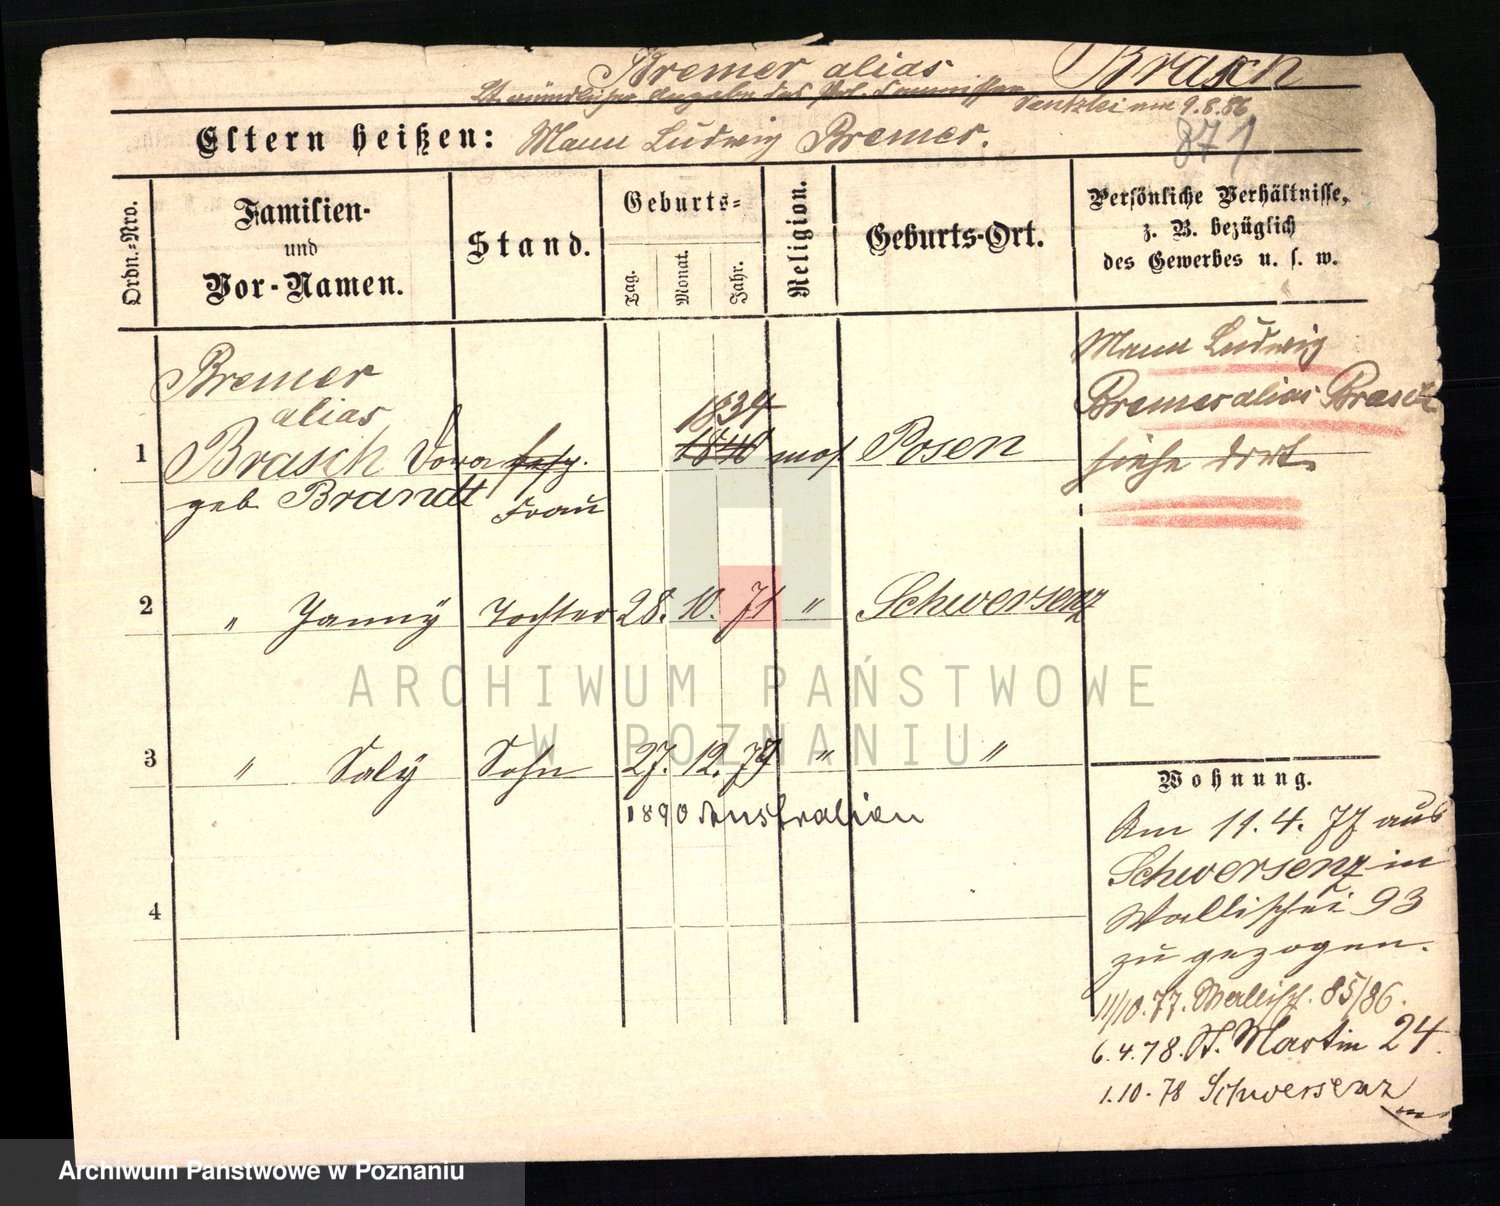 Bremer alias Brasch
Lt. mündlicher Angabe des Pol. Commissar
am 9.8.86
Eltern heißen: Mann Ludwig Bremer.
871
Ordn.-Nro.
Familien-
und
Vor-Namen.
Stand.
Geburts-
Tag.
Monat.
Jahr.
Religion.
Geburts-Ort.
Persönliche Verhältnisse,
z. B. bezüglich
des Gewerbes u. s. w.
Bremer
alias
1 Brasch Dora
geb Brandt
Frau
1834
1840
mos
Posen
Mann Ludwig
Bremer alias Brasch
siehe dort.
2 " Janny Tochter 28. 10. 71 " Schwersenz
3 " Saly Sohn 27. 12. 74 " "
1890 Australien
4
Wohnung.
Am 11.4.77 aus
Schwersenz in
Wallischei 93
zu gezogen.
11/10.77. Wallisch. 85/86.
6.4.78. St. Martin 24.
1.10.78 Schwersenz
ARCHIWUM PAŃSTWOWE
W POZNANIU
Archiwum Państwowe w Poznaniu